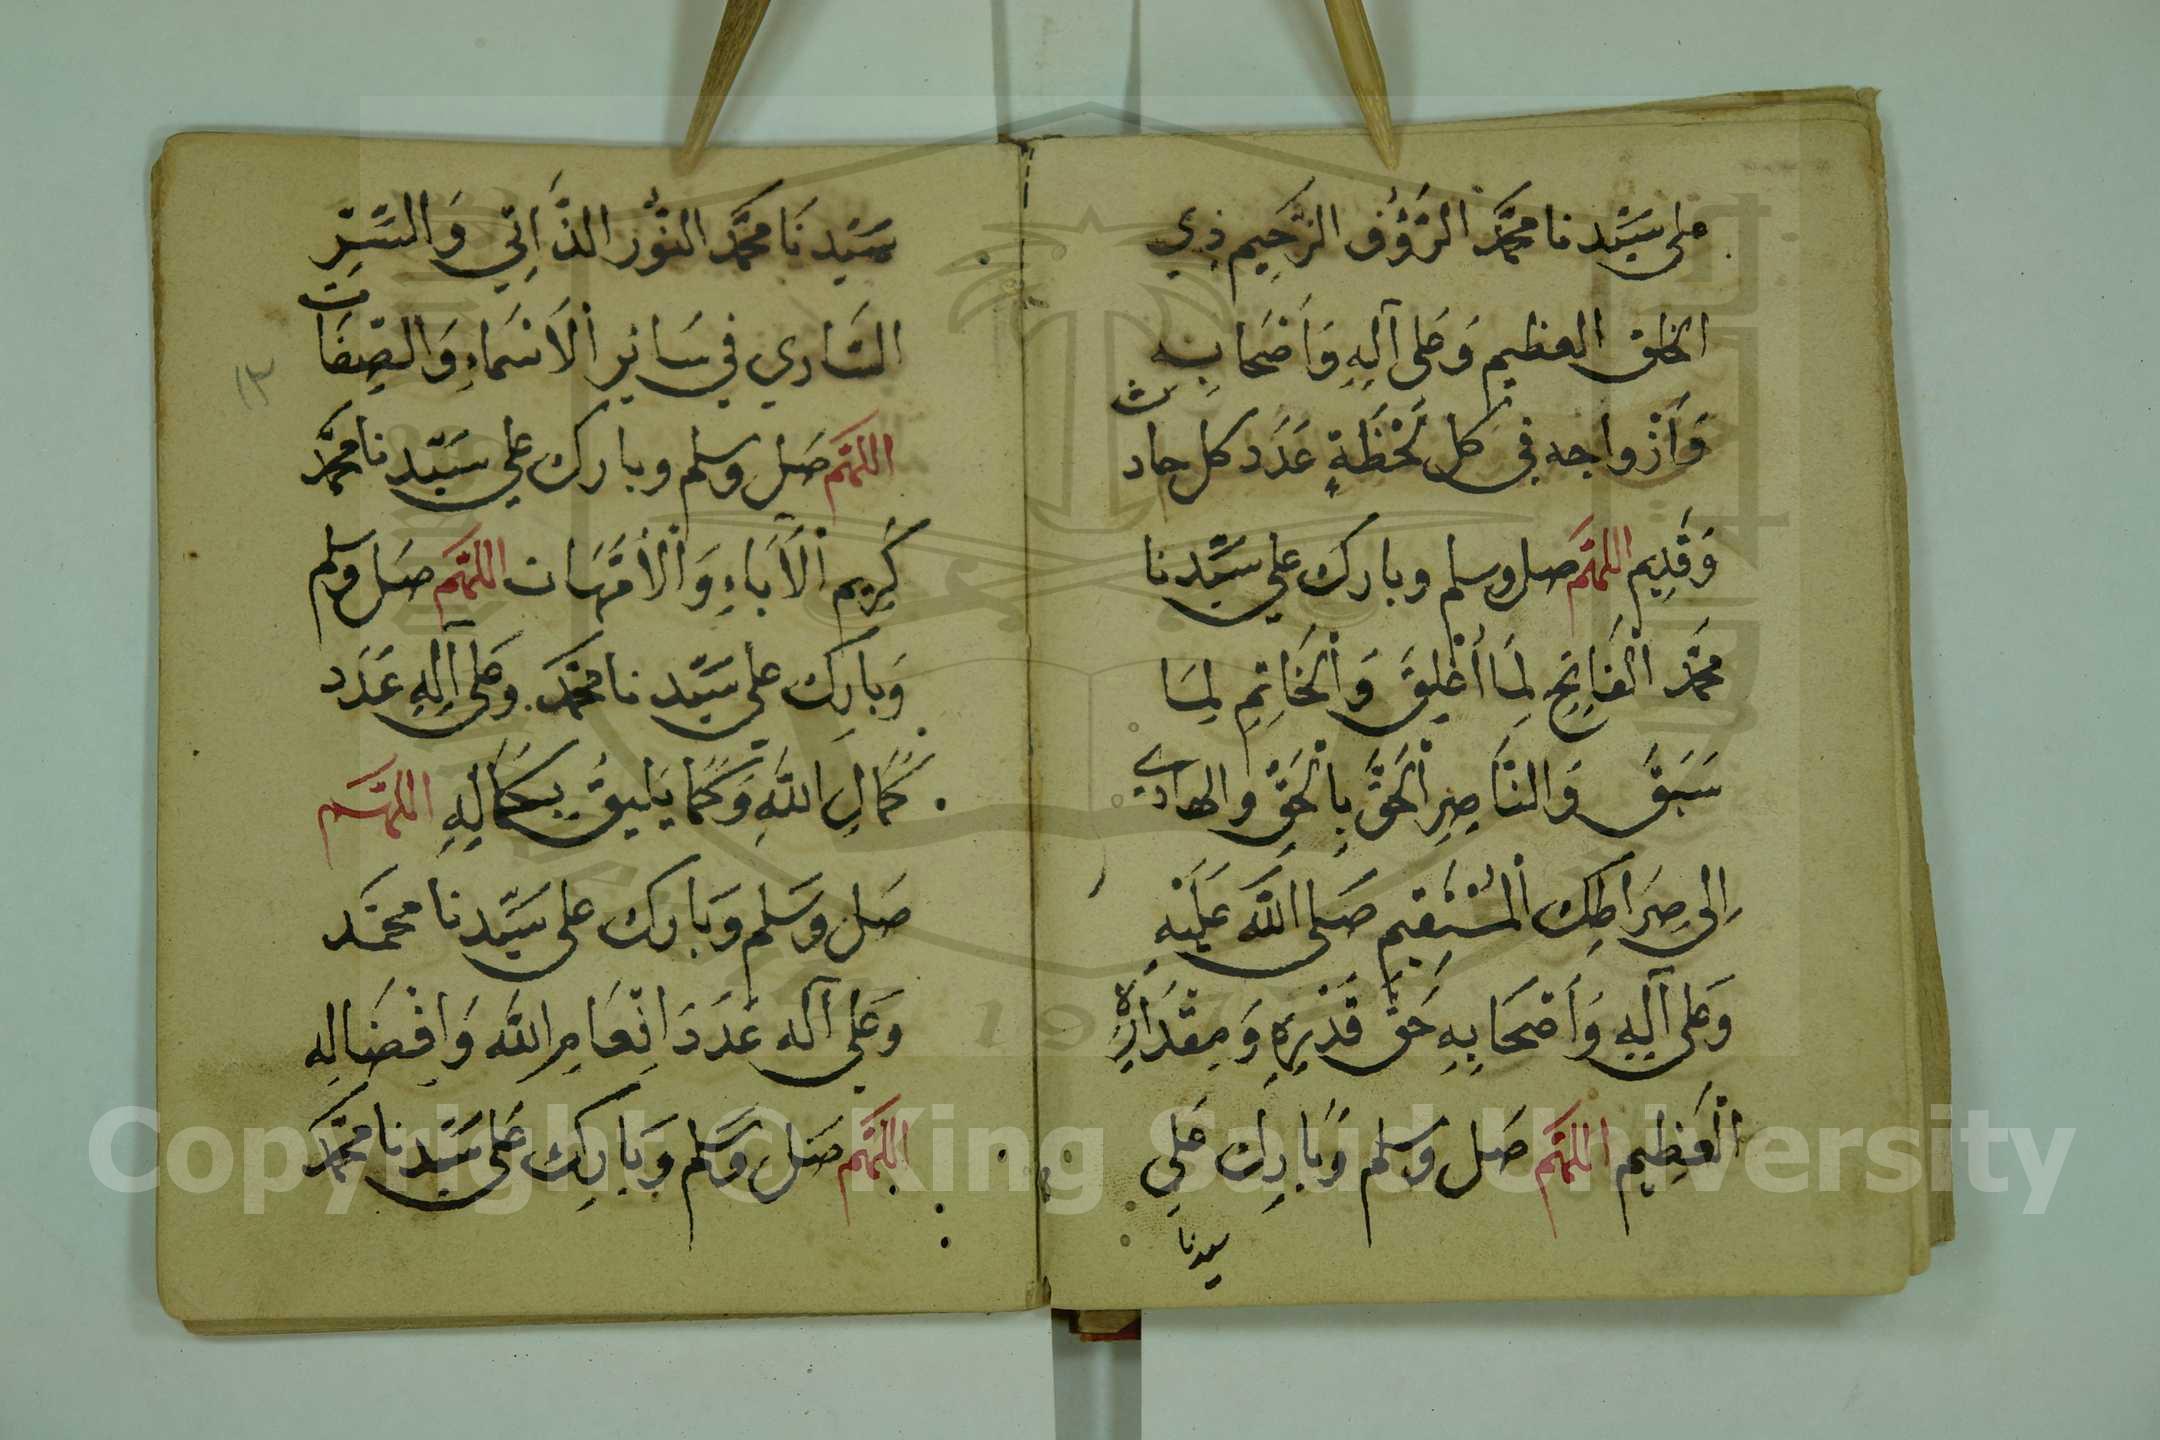 على سَيِّدنا محمَّد الرَّؤُف الرَّحِيم ذِي
الخلق العظيم وَعَلى آلِهِ وَأَصْحَابِه
وَأَزْواجه في كل لَحْظَةٍ عَدَد كل حادث
وَقَدِيم اللهمَّ صل وسلم وبارك على سَيِّدنا
محمَّد الْفَاتِحِ لِمَا أُغْلِقَ وَالْخَاتِمِ لِمَا
سَبَقَ وَالنَّاصِرِ الْحَقَّ بِالْحَقِّ والهادِي
إِلى صِرَاطِكَ الْمُسْتَقِيم صَلى اللَّه عَلَيْهِ
وَعَلى آلِهِ وَأَصْحَابِهِ حَقَّ قَدْرِهِ وَمِقْدَارِهِ
الْعَظِيم اللهمَّ صَل وسلم وَبَارِك عَلى
سيدنا
سَيِّدنَا محمَّد النُّوْرِ الذَّاتِي وَالسِّرِّ
السَّارِي في سَائِرِ الْأَسْمَاءِ وَالصِّفَات
اللهمَّ صَل وسلم وبارك على سَيِّدنا محمَّد
كَرِيم الْآبَاءِ وَالْأُمَّهَات اللهمَّ صَل وسلم
وَبارِك على سَيِّدنا محمَّد وعَلى آلِهِ عَدَد
كَمَالِ اللَّهِ وَكَمَا يَلِيقُ بِكَمَالِهِ اللهمَّ
صَل وَسَلم وَبَارك على سَيِّدنا محمَّد
وَعَلى آله عَدَدَ اِنْعَامِ اللَّه وَاِفْضَالِه
اللهمَّ صَل وَسَلم وَبَارِك عَلى سَيِّدنا محمَّد
١٣
Copyright © King Saud University